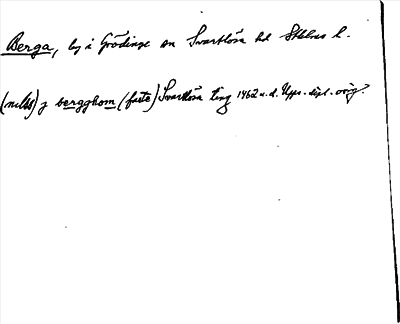 Berga, by i Grödinge sn Svartlösa hd Sthlms l.
(nils) j bergghom (faste) Svartlösa ting 1462 u.d. Upps. dipl. orig.